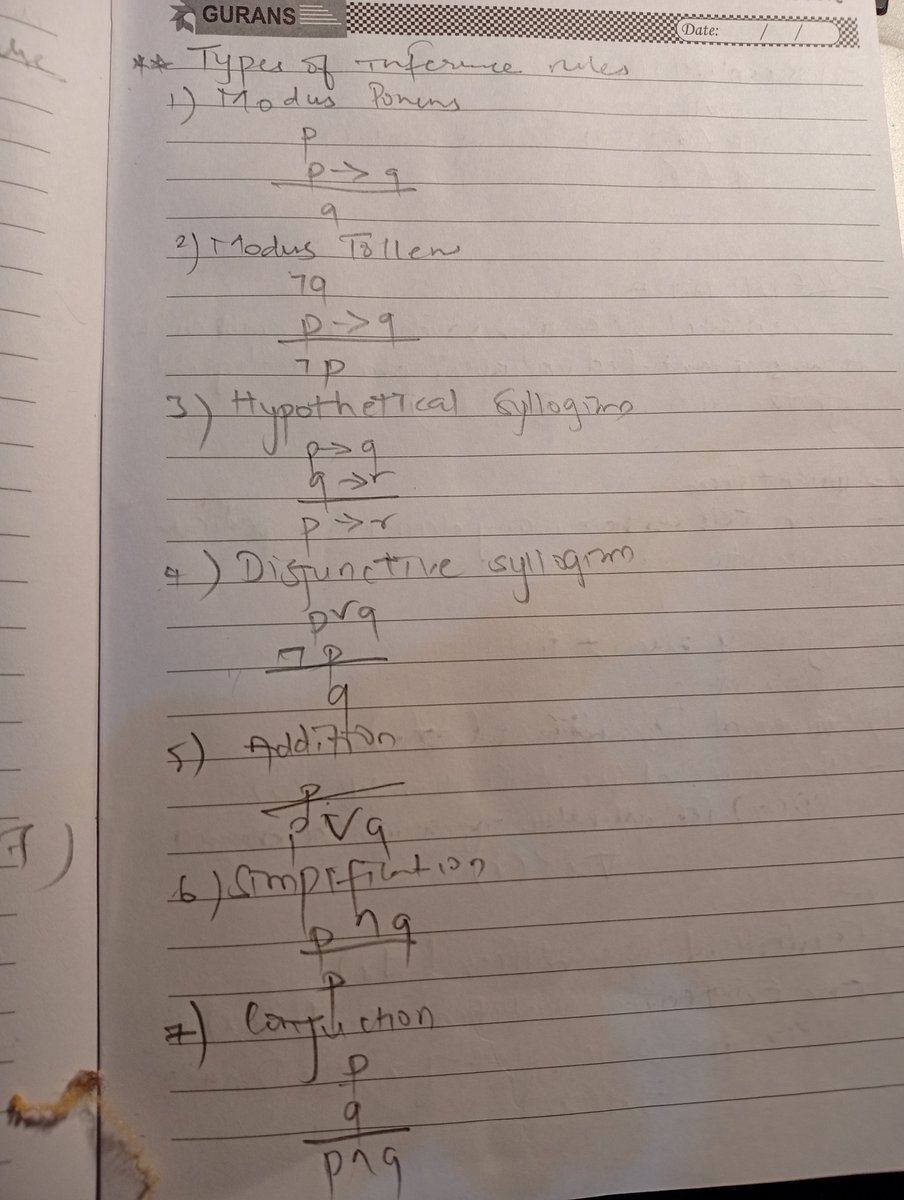 GURANS
Date: / /
** Types of inference rules
1) Modus Ponens
p
p -> q
q
2) Modus Tollens
¬q
p -> q
¬p
3) Hypothetical Syllogism
p -> q
q -> r
p -> r
4) Disjunctive syllogism
p∨q
¬p
q
5) Addition
p
p∨q
6) Simplification
p∧q
p
7) Conjuction
p
q
p∧q